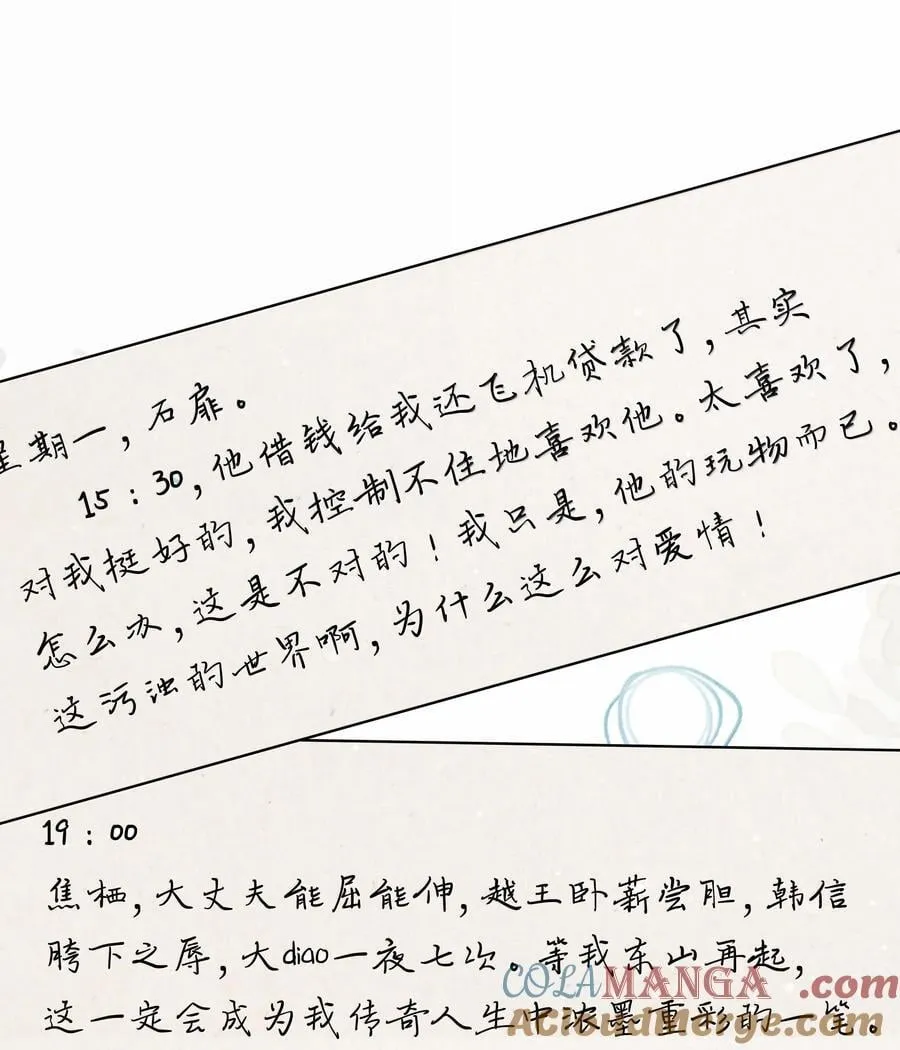 星期一，石扉。
15：30，他借钱给我还飞机贷款了，其实
对我挺好的，我控制不住地喜欢他。太喜欢了，
怎么办，这是不对的！我只是，他的玩物而已。
这污浊的世界啊，为什么这么对爱情！
19：00
焦栖，大丈夫能屈能伸，越王卧薪尝胆，韩信
胯下之辱，大diao一夜七次。等我东山再起，
这一定会成为我传奇人生中浓墨重彩的一笔。
COLAMANGA.com
AcloudMerge.com